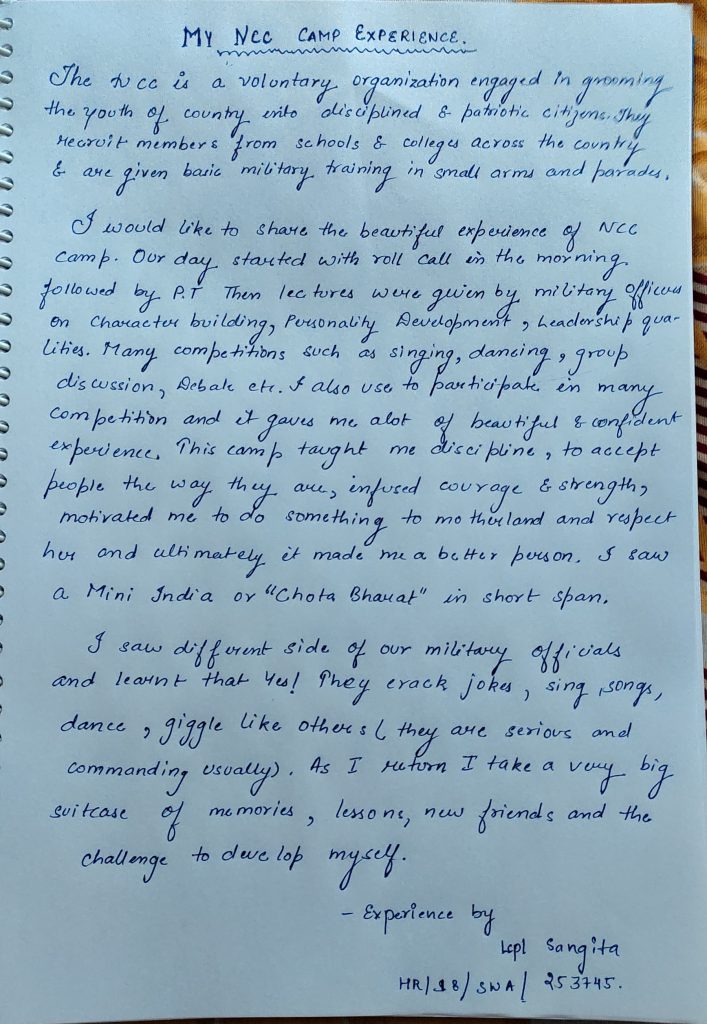 MY NCC CAMP EXPERIENCE.
The NCC is a voluntary organization engaged in grooming
the youth of country into disciplined & patriotic citizens. They
recruit members from schools & colleges across the country
& are given basic military training in small arms and parades.
I would like to share the beautiful experience of NCC
camp. Our day started with roll call in the morning.
followed by P.T Then lectures were given by military officers
on Character building, Personality Development, Leadership qua-
lities. Many competitions such as singing, dancing, group
discussion, Debate etc. I also use to participate in many
competition and it gaves me alot of beautiful & confident
experience. This camp taught me discipline, to accept
people the way they are, infused courage & strength,
motivated me to do something to motherland and respect
her and ultimately it made me a better person. I saw
a Mini India or "Chota Bharat" in short span.
I saw different side of our military officials
and learnt that Yes! They crack jokes, sing songs,
dance, giggle like others ( they are serious and
commanding usually). As I return I take a very big
suitcase of memories, lessons, new friends and the
challenge to develop myself.
- Experience by
Lcpl Sangita
HR/18/SWA/ 253745.